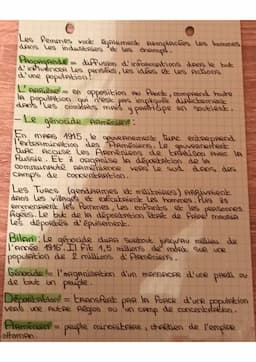 Les femmes vont également remplacées les hommes
dans les industries et les champs.
Propagande = diffusion d'informations dans le but
d'influencer les pensées, les idées et les actions
d'une population.
L'arrière = en opposition au front, comprend toute
la population qui n'est pas impliquée directement
dans les combats mais participe en soutient.
- Le génocide arménien:
En mars 1915, le gouvernement turc entreprend
l'extermination des Arméniens. Le gouvernement
turc accuse les Arméniens de trahison avec la
Russie. Et il organise la déportation de la
communauté arménienne vers le sud dans des
camps de concentration.
Les Turcs (gendarmes et militaires) arrivaient
dans les villages et exécutaient les hommes. Puis ils
emmenaient les femmes, les enfants et les personnes
âgées. Le but de la déportation était de faire mourir
les déportés d'épuisement.
Bilan: Le génocide dura surtout jusqu'au milieu de
l'année 1916. Il fit 1,5 millions de morts sur une
population de 2 millions d'Arméniens.
Génocide = l'organisation d'un massacre d'une partie ou
de tout un peuple.
Déportation = transfert par la force d'une population
vers une autre région ou un camp de concentration.
Arménien = peuple minoritaire, chrétien de l'empire
ottoman.